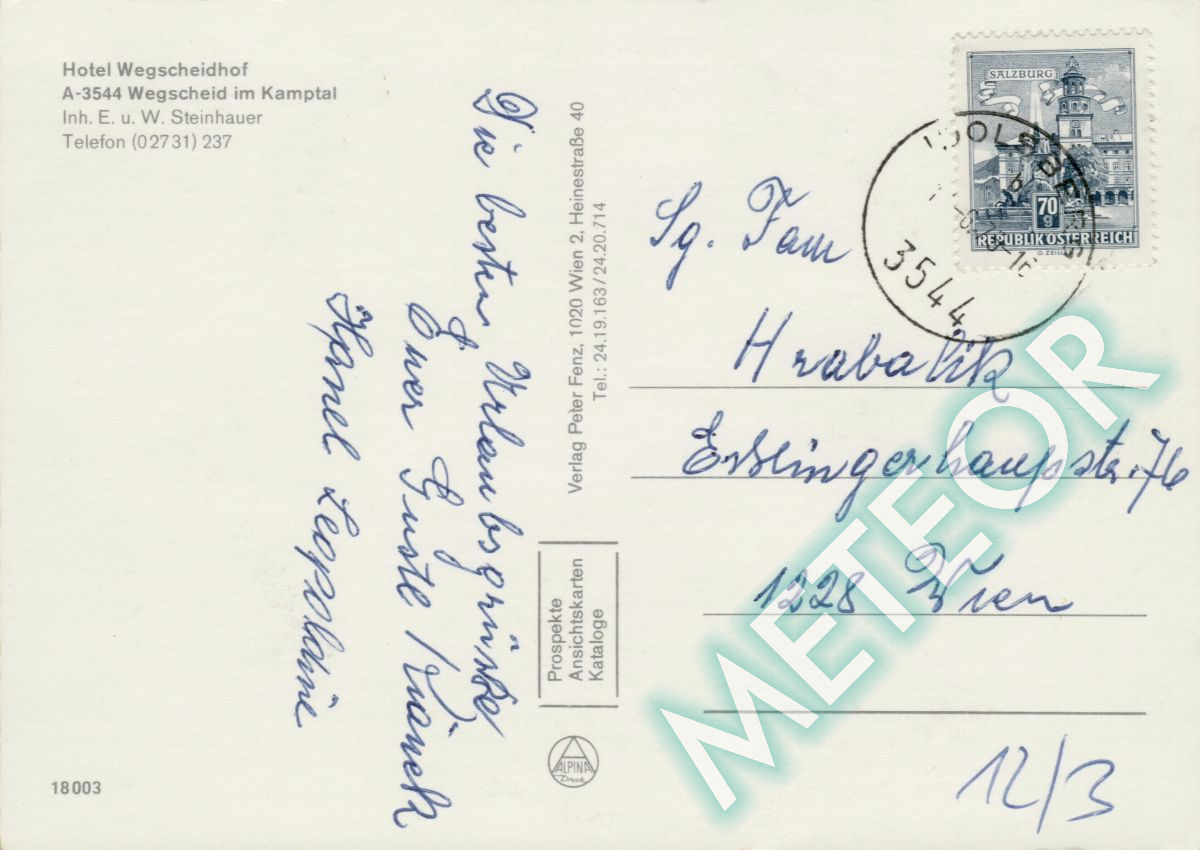 Hotel Wegscheidhof
A-3544 Wegscheid im Kamptal
Inh. E. u. W. Steinhauer
Telefon (02731) 237
Die besten Urlaubsgrüße
Euer Guste
Hansl Leopoldine
Verlag Peter Fenz, 1020 Wien 2, Heinestraße 40
Tel.: 24.19.163/24.20.714
Prospekte
Ansichtskarten
Kataloge
ALPINA
Druck
18003
SALZBURG
70
g
REPUBLIK ÖSTERREICH
3544
Sg. Fam
Hrabalik
Esslingerhauptstr. 76
1228 Wien
12/3
METEOR